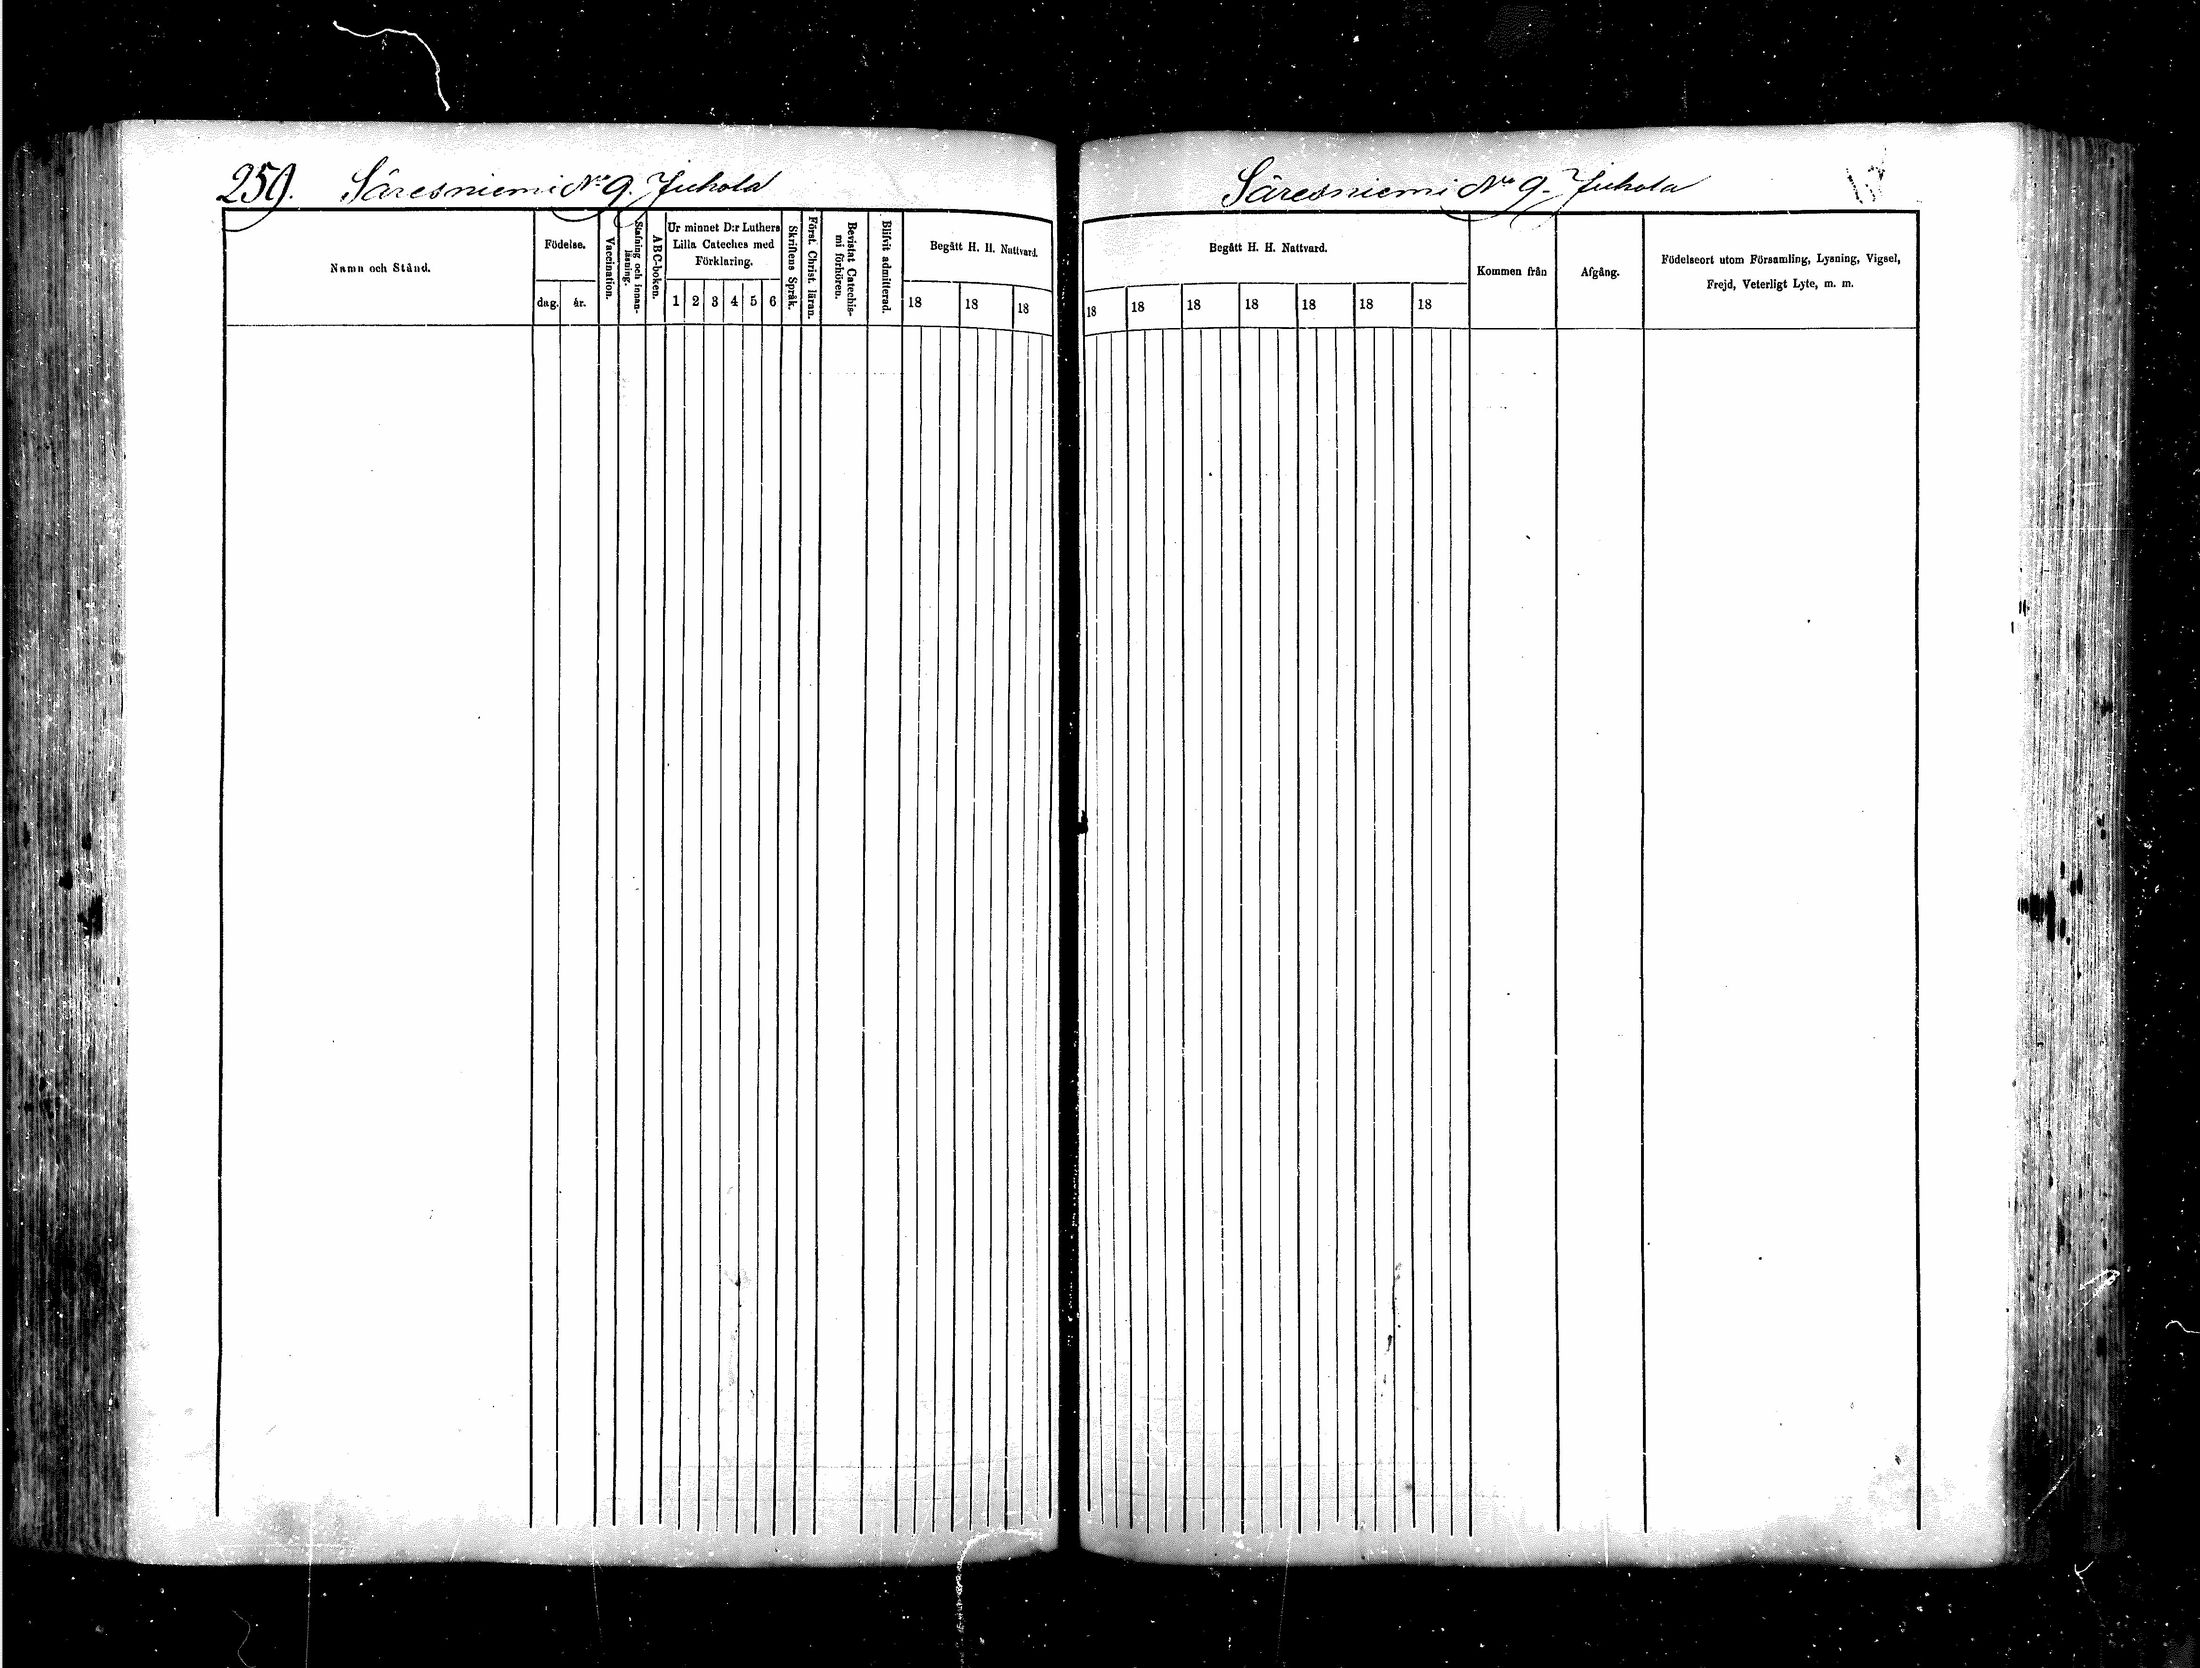 259. Säresniemi No 9. Juhola
Namn och Stånd.
Födelse.
dag.
år.
Vaccination.
Stafning och innan-
läsning.
ABC-boken.
Ur minnet D:r Luthers
Lilla Cateches med
Förklaring.
1 2 3 4 5 6
Skriftens Språk.
Först. Christ. läran.
Bevistat Catechis-
mi förhören.
Blifvit admitterad.
Begått H. H. Nattvard.
18 18 18
Säresniemi No 9. Juhola
Begått H. H. Nattvard.
18 18 18 18 18 18 18
Kommen från
Afgång.
Födelseort utom Församling, Lysning, Vigsel,
Frejd, Veterligt Lyte, m. m.